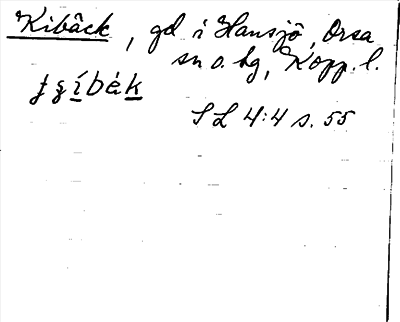 Kibäck, gd i Hansjö, Orsa
sn o. hg, Kopp. l.
SL 4:4 s. 55